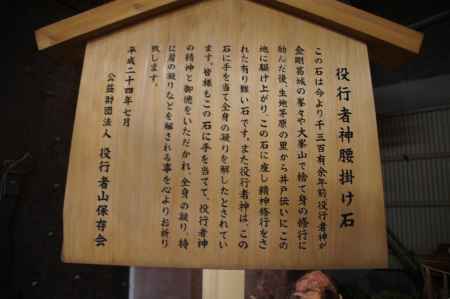 役行者神腰掛け石
この石は今より千三百有余年前役行者神が
金剛葛城の峯々や大峯山で捨て身の修行に
励んだ後、生地茅原の里から井戸伝いにこの
地に駆け上がり、この石に座し精神修行をさ
れた有り難い石です。また役行者神は、この
石に手を当て全身の凝りを解したとされてい
ます。皆様もこの石に手を当てて、役行者神
の精神と御徳をいただかれ、全身の凝り、特
に肩の凝りなどを解される事を心よりお祈り
致します。
平成二十四年七月
公益財団法人 役行者山保存会